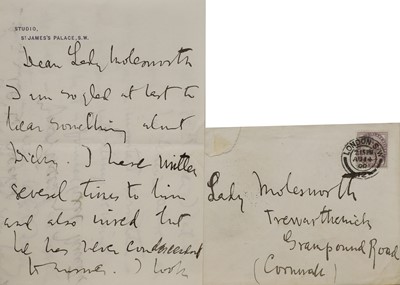 STUDIO,
ST JAMES'S PALACE, S.W.
Dear Lady Molesworth
I am so glad at last to
hear something about
I have written
several times to him
and also wired but
he has never condescended
to answer. I
LONDON. S.W.
AU 14
00
Lady Molesworth
Trewarthenick
Grampound Road
(Cornwall)